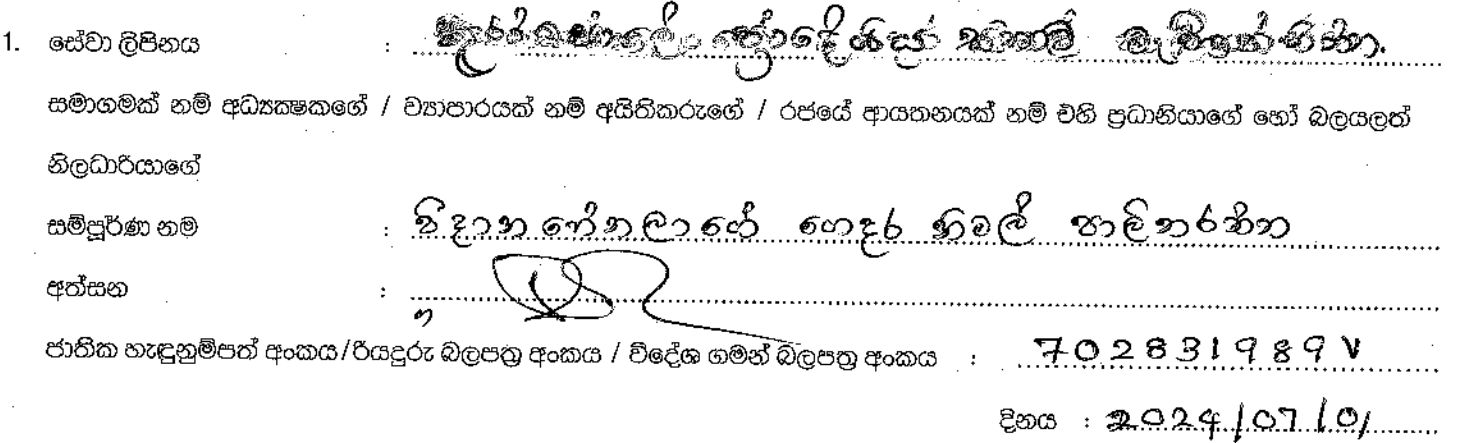 1. සේවා ලිපිනය :
සමාගමක් නම් අධ්‍යක්ෂකගේ / ව්‍යාපාරයක් නම් අයිතිකරුගේ / රජයේ ආයතනයක් නම් එහි ප්‍රධානියාගේ හෝ බලයලත්
නිලධාරියාගේ
සම්පූර්ණ නම : විදානගේනලාගේ ගෙදර නිමල් පාලිතරත්න
අත්සන :
ජාතික හැඳුනුම්පත් අංකය/රියදුරු බලපත්‍ර අංකය / විදේශ ගමන් බලපත්‍ර අංකය : 702831989V
දිනය : 2024/07/01